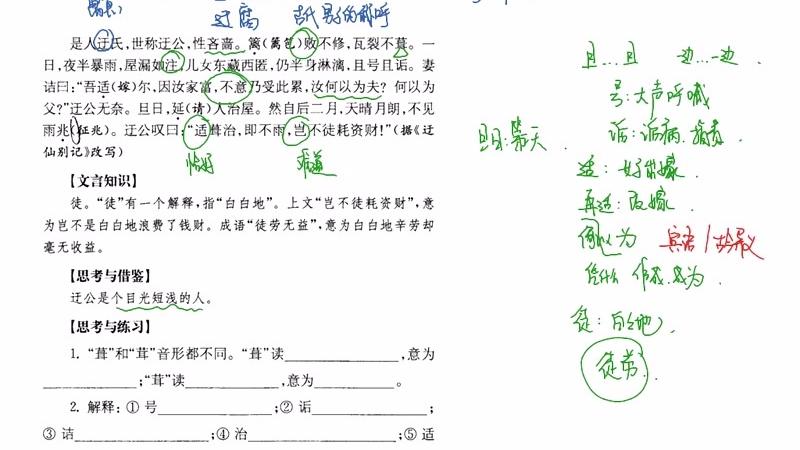 迂腐
古代男子的称呼
是人迂氏，世称迂公，性吝啬。篱(篱笆)败不修，瓦裂不葺。一
日，夜半暴雨，屋漏如注，儿女东藏西匿，仍半身淋漓，且号且诟。妻
诘曰：“吾适(嫁)尔，因汝家富，不意乃受此累，汝何以为夫？何以为
父？”迂公无奈。旦日，延(请)人治屋。然自后二月，天晴月朗，不见
雨兆(征兆)。迂公叹曰：“适葺治，即不雨，岂不徒耗资财！”(据《迂
仙别记》改写)
恰好
难道
【文言知识】
徒。“徒”有一个解释，指“白白地”。上文“岂不徒耗资财”，意
为岂不是白白地浪费了钱财。成语“徒劳无益”，意为白白地辛劳却
毫无收益。
【思考与借鉴】
迂公是个目光短浅的人。
【思考与练习】
1. “葺”和“茸”音形都不同。“葺”读，意为
；“茸”读，意为。
2. 解释：① 号；② 诟；
③ 诘；④ 治；⑤ 适
且…且 一边…一边
号：大声呼喊
诟：诟病、指责
旦日：第二天
适：女子出嫁
再适：改嫁
何以为 宾语/
凭什么 作为、成为
徒：白白地
徒劳